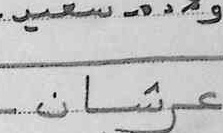 سعيد
عرشان